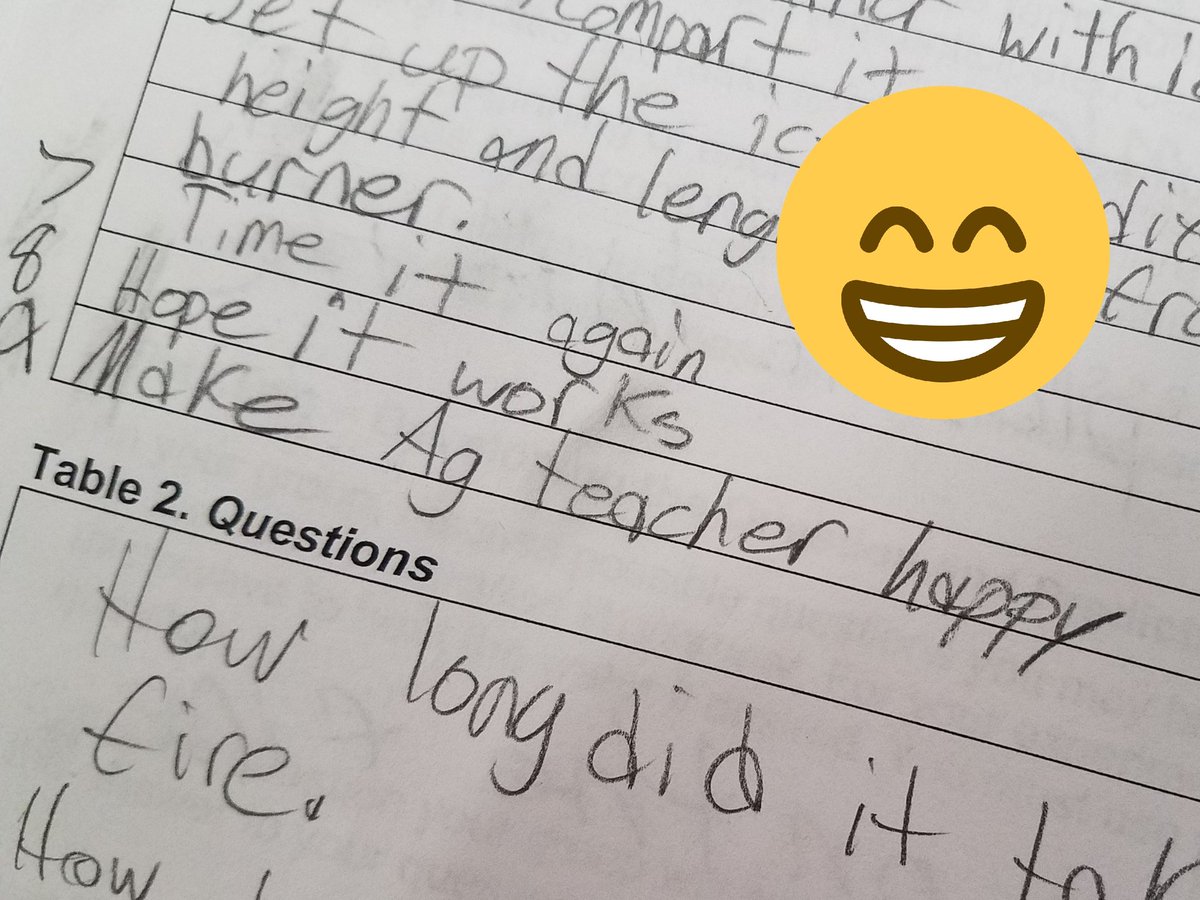 compart it with
Set up the
height and
burner.
7 Time it again
8 Hope it works
9 Make Ag teacher happy
Table 2. Questions
How long did it
fire.
How